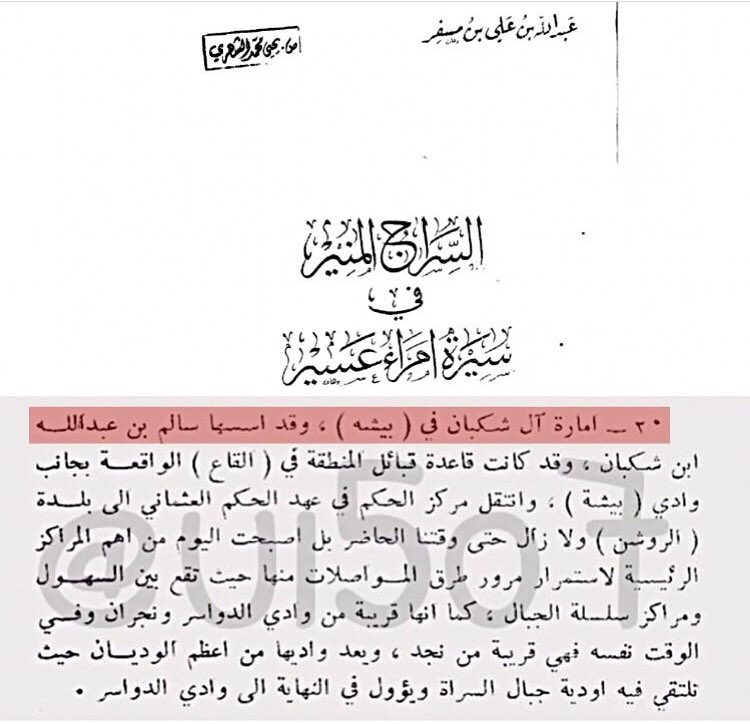 عبدالله بن علي بن مسفر
من. يحيى محمد الشهري
السراج المنير
في
سيرة امراء عسير
٣٠ ــ امارة آل شكبان في ( بيشه ) ، وقد اسسها سالم بن عبدالله
ابن شكبان ، وقد كانت قاعدة قبائل المنطقة في ( القاع ) الواقعة بجانب
وادي ( بيشة ) ، وانتقل مركز الحكم في عهد الحكم العثماني الى بلدة
( الروشن ) ولا زال حتى وقتنا الحاضر بل اصبحت اليوم من اهم المراكز
الرئيسية لاستمرار مرور طرق المواصلات منها حيث تقع بين السهول
ومراكز سلسلة الجبال ، كما انها قريبة من وادي الدواسر ونجران وفي
الوقت نفسه فهي قريبة من نجد ، ويعد واديها من اعظم الوديان حيث
تلتقي فيه اودية جبال السراة ويؤول في النهاية الى وادي الدواسر .
@ul5o7